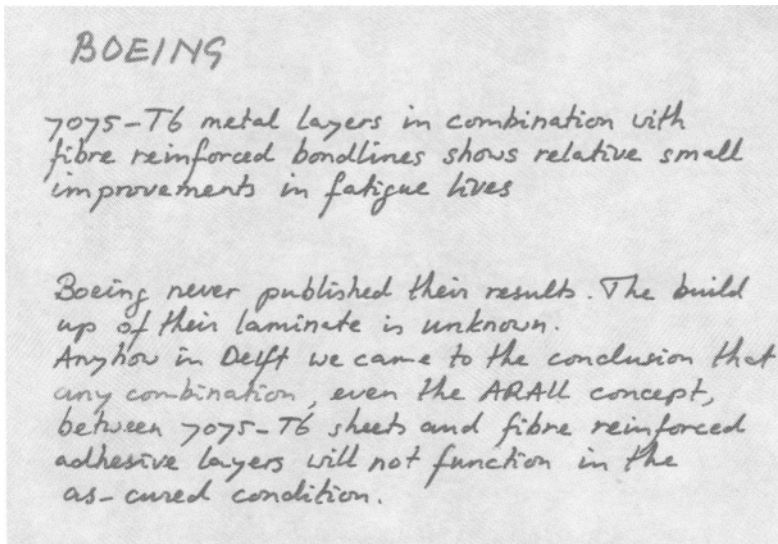 BOEING
7075-T6 metal layers in combination with
fibre reinforced bondlines shows relative small
improvements in fatigue lives
Boeing never published their results. The build
up of their laminate is unknown.
Anyhow in Delft we came to the conclusion that
any combination, even the ARALL concept,
between 7075-T6 sheets and fibre reinforced
adhesive layers will not function in the
as-cured condition.